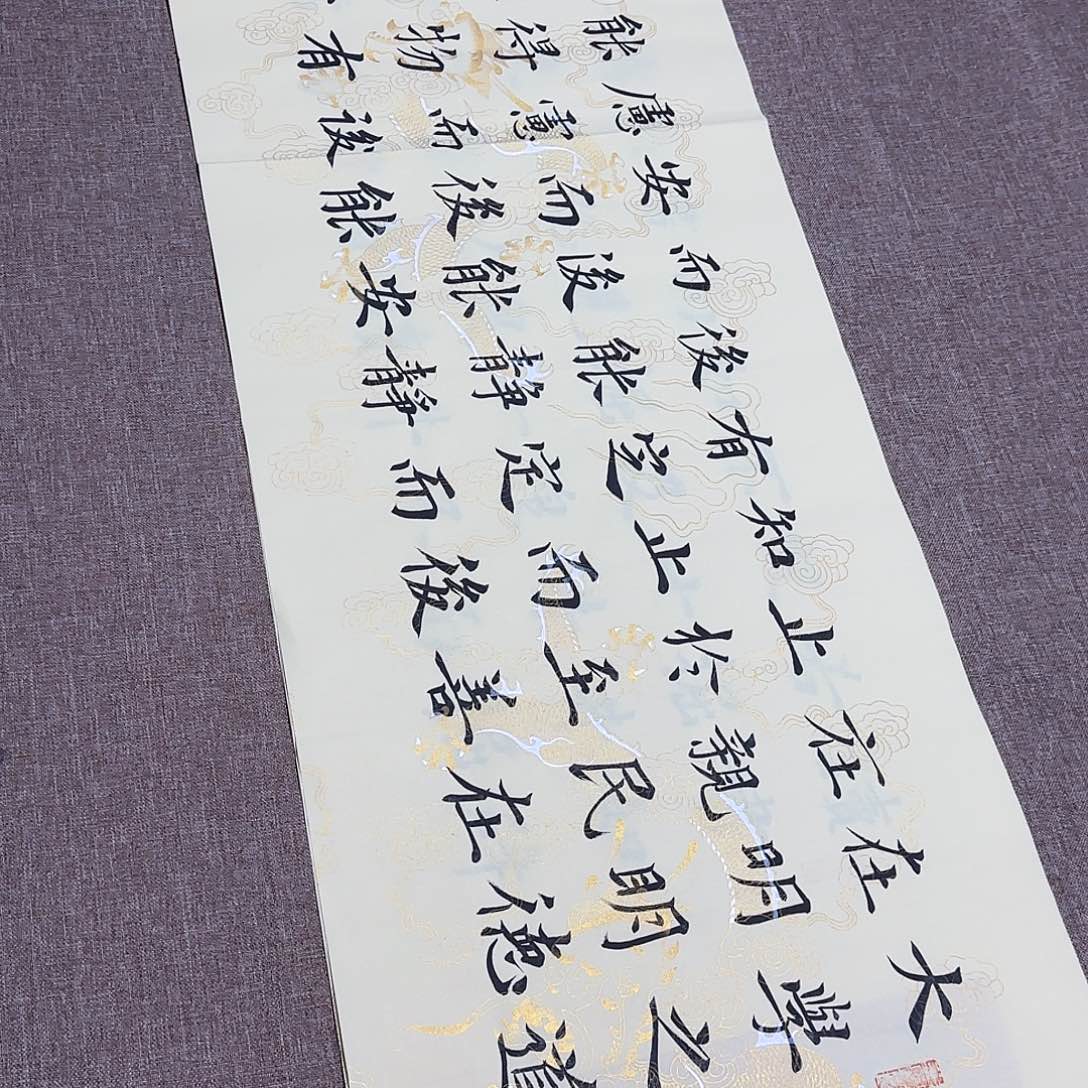 大學之道
在明明德
在親民在
止於至善
知止而後
有定定而
後能靜靜
而後能安
安而後能
慮慮而後
能得物有